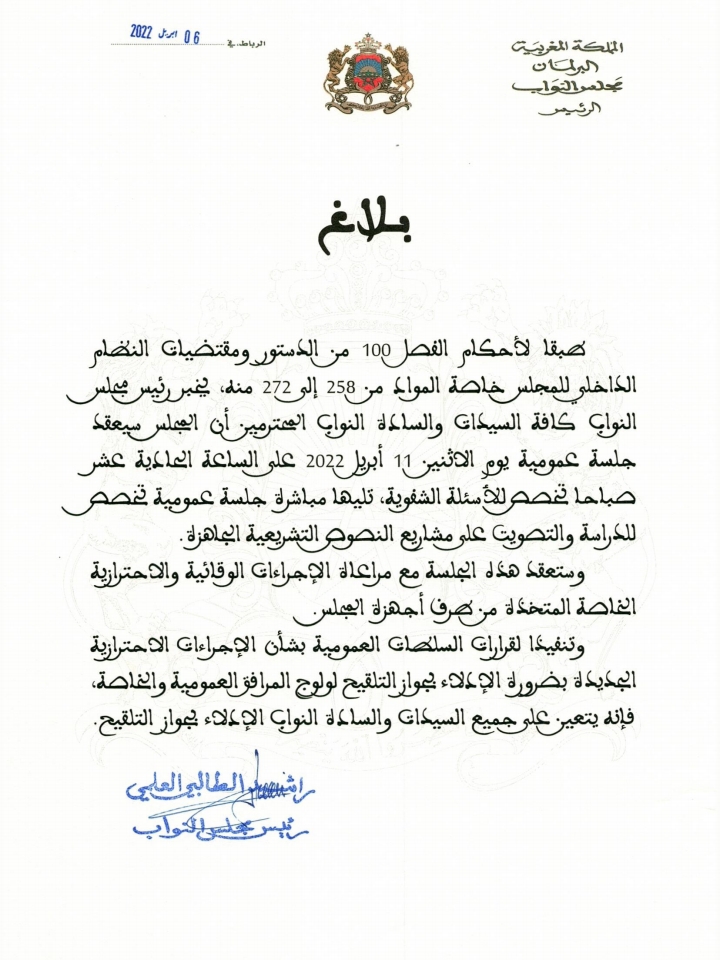 المملكة المغربية
البرلمان
مجلس النواب
الرئيس
الرباط، في 06 ابريل 2022
بلاغ
طبقا لأحكام الفصل 100 من الدستور ومقتضيات النظام
الداخلي للمجلس خاصة المواد من 258 إلى 272 منه، يخبر رئيس مجلس
النواب كافة السيدات والسادة النواب المحترمين أن المجلس سيعقد
جلسة عمومية يوم الاثنين 11 أبريل 2022 على الساعة الحادية عشر
صباحا تخصص للأسئلة الشفوية، تليها مباشرة جلسة عمومية تخصص
للدراسة والتصويت على مشاريع النصوص التشريعية الجاهزة.
وستعقد هذه الجلسة مع مراعاة الإجراءات الوقائية والاحترازية
الخاصة المتخذة من طرف أجهزة المجلس.
وتنفيذا لقرارات السلطات العمومية بشأن الإجراءات الاحترازية
الجديدة بضرورة الإدلاء بجواز التلقيح لولوج المرافق العمومية والخاصة،
فإنه يتعين على جميع السيدات والسادة النواب الإدلاء بجواز التلقيح.
راشيد الطالبي العلمي
رئيس مجلس النواب